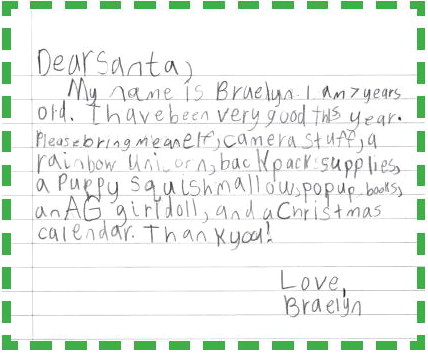 Dear Santa,
My name is Braelyn. I am 7 years
old. I have been very good this year.
Please bring me an elf, camera stuff, a
rainbow unicorn, back pack supplies,
a Puppy Squishmallow, pop up books,
an AG girl doll, and a Christmas
calendar. Thank you!
Love,
Braelyn